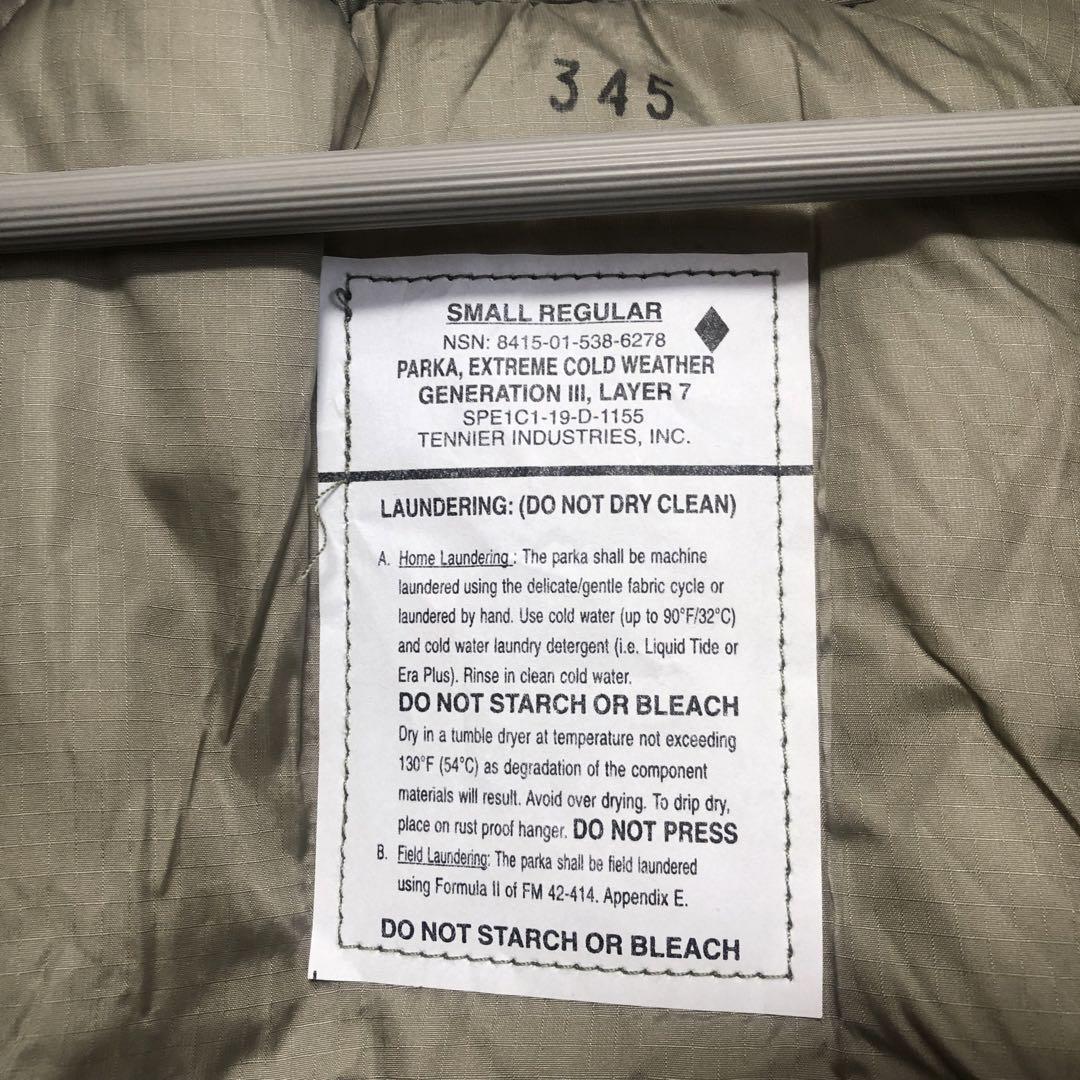 345
SMALL REGULAR
NSN: 8415-01-538-6278
PARKA, EXTREME COLD WEATHER
GENERATION III, LAYER 7
SPE1C1-19-D-1155
TENNIER INDUSTRIES, INC.
LAUNDERING: (DO NOT DRY CLEAN)
A. Home Laundering : The parka shall be machine
laundered using the delicate/gentle fabric cycle or
laundered by hand. Use cold water (up to 90°F/32°C)
and cold water laundry detergent (i.e. Liquid Tide or
Era Plus). Rinse in clean cold water.
DO NOT STARCH OR BLEACH
Dry in a tumble dryer at temperature not exceeding
130°F (54°C) as degradation of the component
materials will result. Avoid over drying. To drip dry,
place on rust proof hanger. DO NOT PRESS
B. Field Laundering: The parka shall be field laundered
using Formula II of FM 42-414. Appendix E.
DO NOT STARCH OR BLEACH